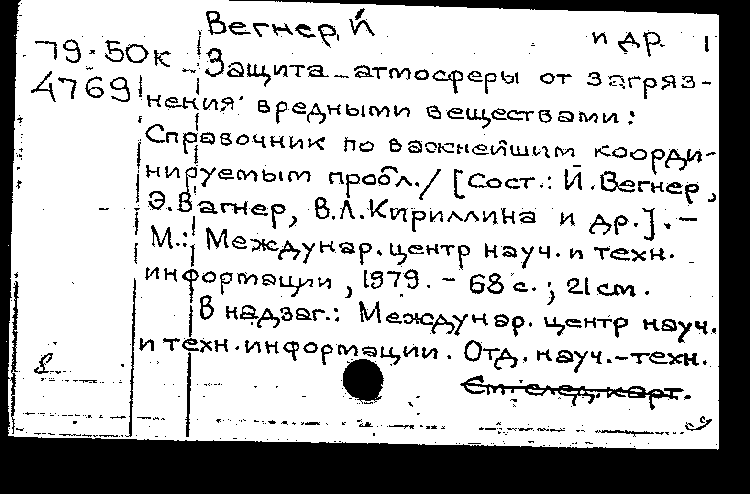 Вегнер, Й и др. 1
79-50к
4769
Защита атмосферы от загряз-
нения вредными веществами:
Справочник по важнейшим коорди-
нируемым пробл./ [Сост.: Й.Вегнер,
Э.Вагнер, В.Л.Кириллина и др.]. -
М.: Междунар. центр науч. и техн.
информации, 1979. - 68 с.; 21 см.
В надзаг.: Междунар. центр науч.
и техн. информации. Отд. науч.-техн.
8
См. след. карт.